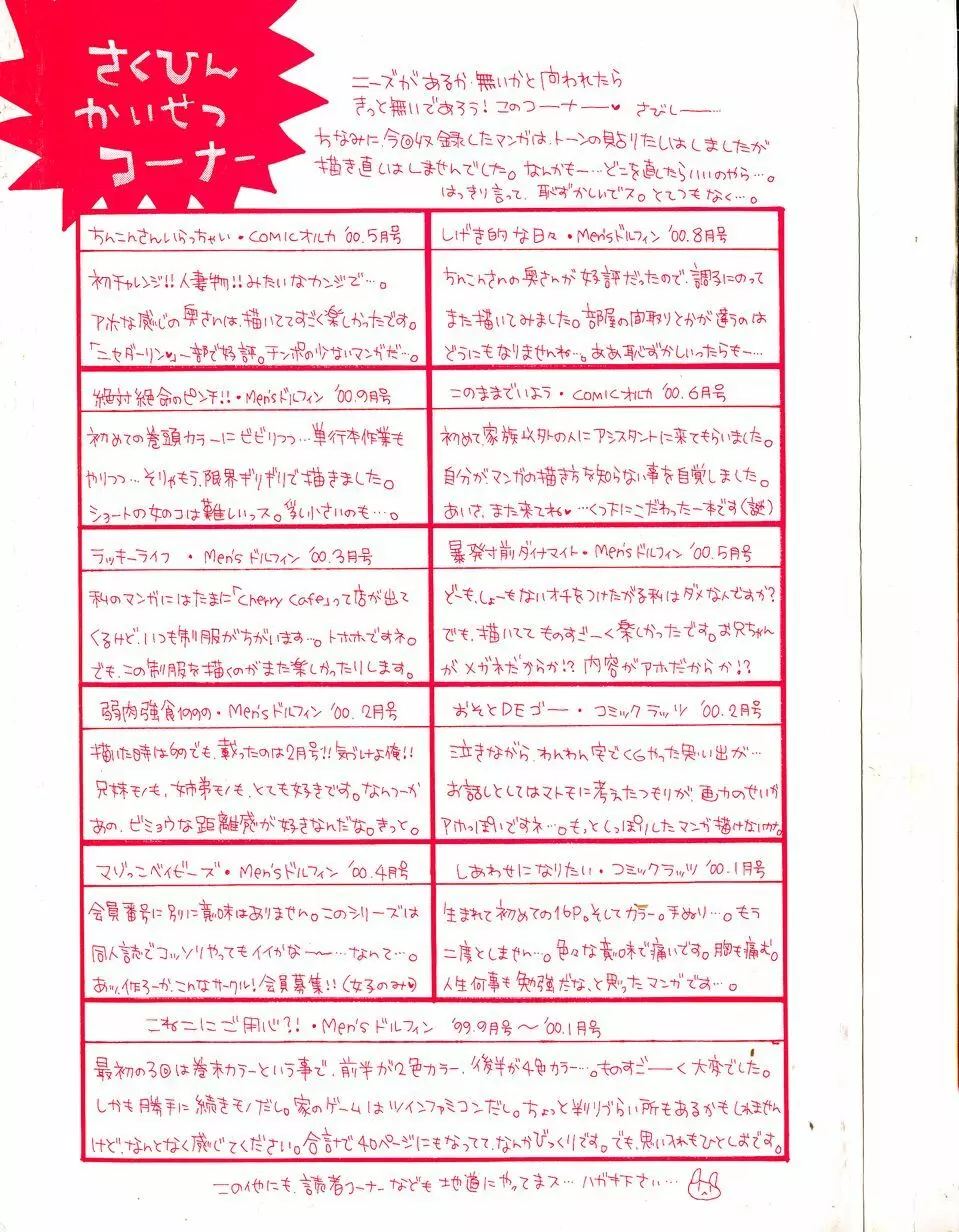 さくひん
かいせつ
コーナー
ニーズがあるか無いかと問われたら
きっと無いであろう!このコーナー♥ さびしー…
ちなみに、今回収録したマンガは、トーンの貼りたしはしましたが
描き直しはしませんでした。なんかもー…どこを直したらいいのやら…。
はっきり言って、恥ずかしいでス。とてつもなく…。
ちんこんさんいらっちゃい・COMICオルカ '00.5月号
初チャレンジ!!人妻物!!みたいなカンジで…。
アホな感じの奥さんは、描いててすごく楽しかったです。
「ニセダーリン♥」一部で好評。チンポの少ないマンガだ…。
しげき的な日々・Men'sドルフィン '00.8月号
ちんこんさんの奥さんが好評だったので、調子にのって
また描いてみました。部屋の間取りとかが違うのは
どうにもなりませんね…。ああ恥ずかしいったらもー…
絶対絶命のピンチ!!・Men'sドルフィン '00.9月号
初めての巻頭カラーにビビりつつ…単行本作業も
やりつつ…そりゃもう、限界ギリギリで描きました。
ショートの女のコは難しいっス。乳小さいのも…。
このままでいよう・COMICオルカ '00.6月号
初めて、家族以外の人にアシスタントに来てもらいました。
自分がマンガの描き方を知らない事を自覚しました。
あいさ、また来てね♥…くつ下にこだわった一本です(謎)
ラッキーライフ ・Men'sドルフィン '00.3月号
私のマンガにはたまに「Cherry Cafe」って店が出て
くるけど、いつも制服がちがいます…。トホホですネ。
でも、この制服を描くのがまた楽しかったりします。
暴発寸前ダイナマイト・Men'sドルフィン '00.5月号
どーも、しょーもないオチをつけたがる私はダメなんですか?
でも、描いてて ものすごーく楽しかったです。お兄ちゃん
がメガネだからか!?内容がアホだからか!?
弱肉強食1999・Men'sドルフィン '00.2月号
描いた時は'99でも、載ったのは2月号!!気づけよ俺!!
兄妹モノも、姉弟モノも、とても好きです。なんつーか
あの、ビミョウな距離感が好きなんだな。きっと。
おそとDEゴー・コミックラッツ '00.2月号
泣きながら、わんわん宅でCGやった思い出が…
お話しとしてはマトモに考えたつもりが、画力のせいか
アホっぽいですネ…。もっとしっぽりしたマンガ描けないかな。
マゾっこベイビーズ・Men'sドルフィン '00.4月号
会員番号に別に意味はありません。このシリーズは
同人誌でコッソリやってもイイかな〜…なんて…。
あッ、作ろーか、こんなサークル!会員募集!!(女子のみ♥)
しあわせになりたい・コミックラッツ '00.1月号
生まれて初めての16P。そしてカラー。手ぬり…。もう
二度としません…。色々な意味で痛いです。胸も痛む。
人生何事も勉強だな、と思ったマンガです…。
こねこにご用心?!・Men'sドルフィン '99.9月号〜'00.1月号
最初の3回は巻末カラーという事で、前半が2色カラー、後半が4色カラー…。ものすごーく大変でした。
しかも勝手に続きモノだし。家のゲームはツインファミコンだし。ちょっと判りづらい所もあるかもしれません
けど、なんとなく感じてください。合計で40ページにもなってて、なんかびっくりです。でも、思い入れもひとしおです。
この他にも、読者コーナーなども地道にやってまス…ハガキ下さい…